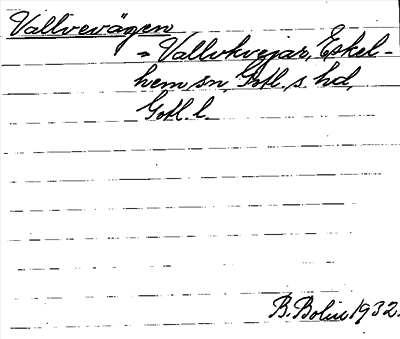 Vallvevägen
= Vallvkvejar, Eskel-
hem sn, Gotl. s. hd,
Gotl. l.
B. Bolin 1932.